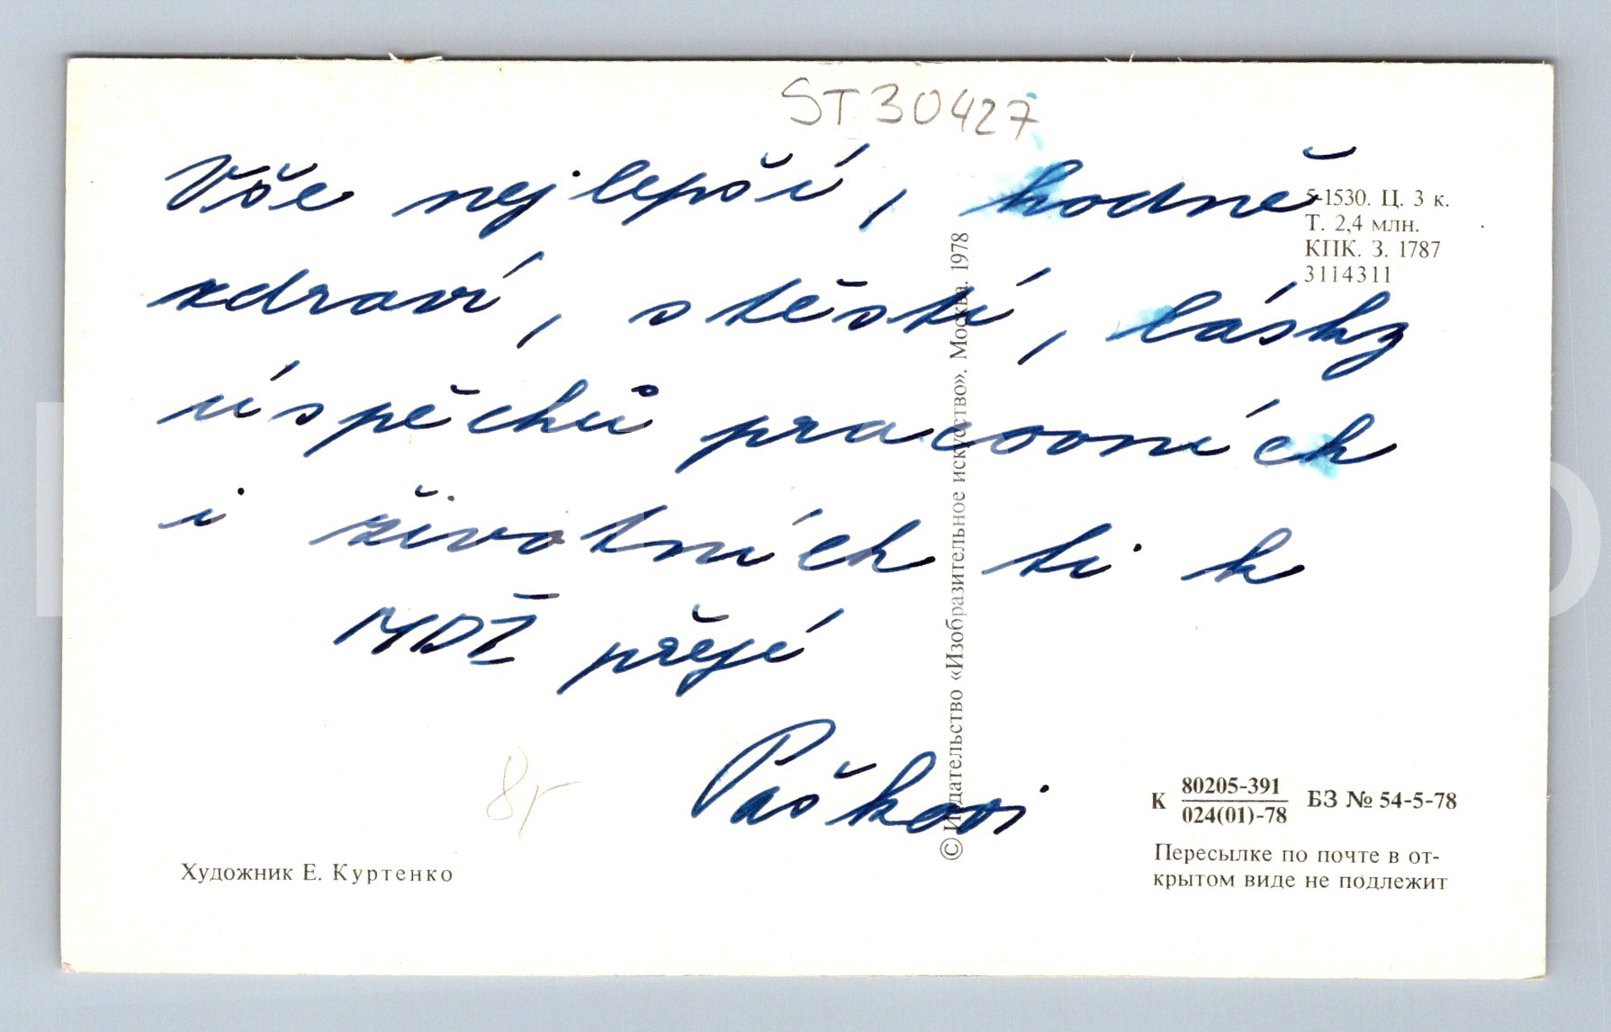 ST30427
Vše nejlepší, hodně
zdraví, stěstí, lásky
úspěchů pracovních
i životních ti k
MDŽ přejí
Paškovi
8,-
5-1530. Ц. 3 к.
Т. 2,4 млн.
КПК. З. 1787
3114311
© Издательство «Изобразительное искусство». Москва. 1978
К 80205-391
024(01)-78
БЗ № 54-5-78
Пересылке по почте в от-
крытом виде не подлежит
Художник Е. Куртенко